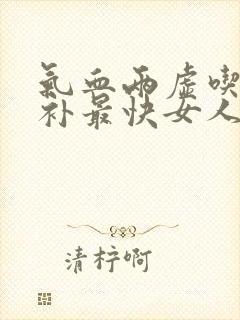 氣血兩虛喫
补最快女人
清柠啊